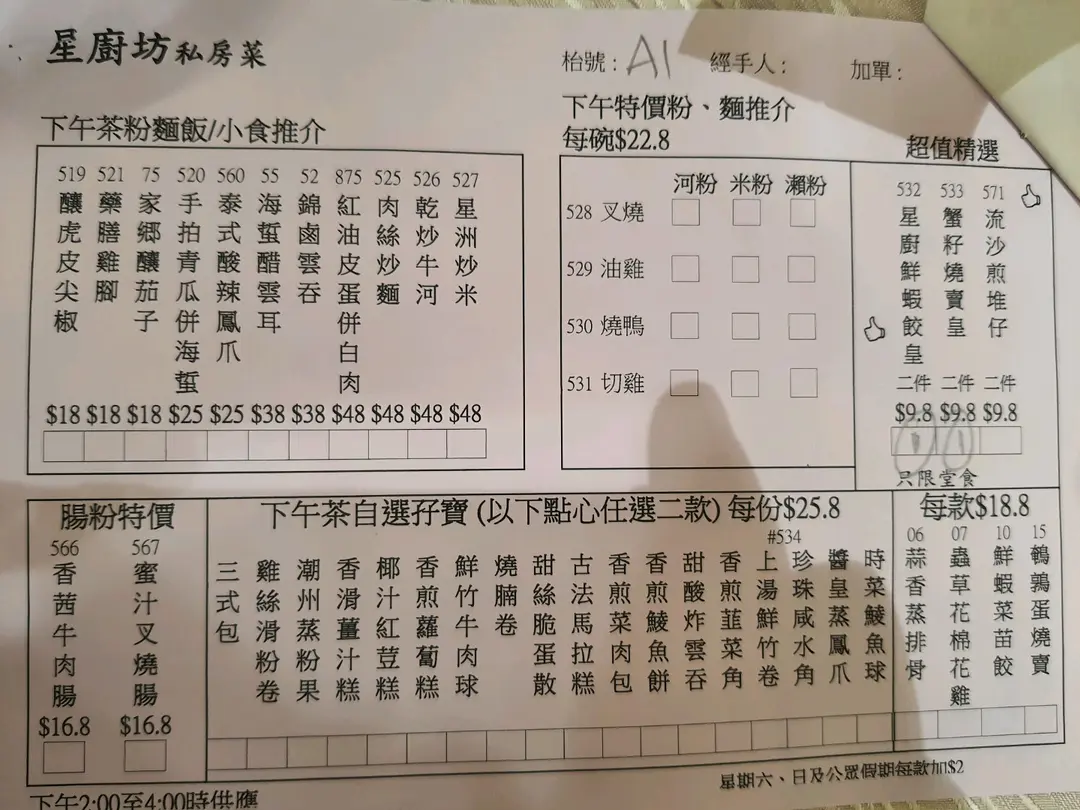 星廚坊私房菜
枱號: A1 經手人: 加單:
下午茶粉麵飯/小食推介
519 釀虎皮尖椒 $18
521 藥膳雞腳 $18
75 家鄉釀茄子 $18
520 手拍青瓜併海蜇 $25
560 泰式酸辣鳳爪 $25
55 海蜇醋雲耳 $38
52 錦鹵雲吞 $38
875 紅油皮蛋併白肉 $48
525 肉絲炒麵 $48
526 乾炒牛河 $48
527 星洲炒米 $48
下午特價粉、麵推介
每碗$22.8
河粉 米粉 瀨粉
528 叉燒
529 油雞
530 燒鴨
531 切雞
超值精選
532 星廚鮮蝦餃皇 二件 $9.8 1
533 蟹籽燒賣皇 二件 $9.8 1
571 流沙煎堆仔 二件 $9.8
只限堂食
腸粉特價
566 香茜牛肉腸 $16.8
567 蜜汁叉燒腸 $16.8
下午茶自選孖寶 (以下點心任選二款) 每份$25.8
#534
三式包
雞絲滑粉卷
潮州蒸粉果
香滑薑汁糕
椰汁紅荳糕
香煎蘿蔔糕
鮮竹牛肉球
燒腩卷
甜絲脆蛋散
古法馬拉糕
香煎菜肉包
香煎鯪魚餅
甜酸炸雲吞
香煎韮菜角
上湯鮮竹卷
珍珠咸水角
醬皇蒸鳳爪
時菜鯪魚球
每款$18.8
06 蒜香蒸排骨
07 蟲草花棉花雞
10 鮮蝦菜苗餃
15 鵪鶉蛋燒賣
星期六、日及公眾假期每款加$2
下午2:00至4:00時供應